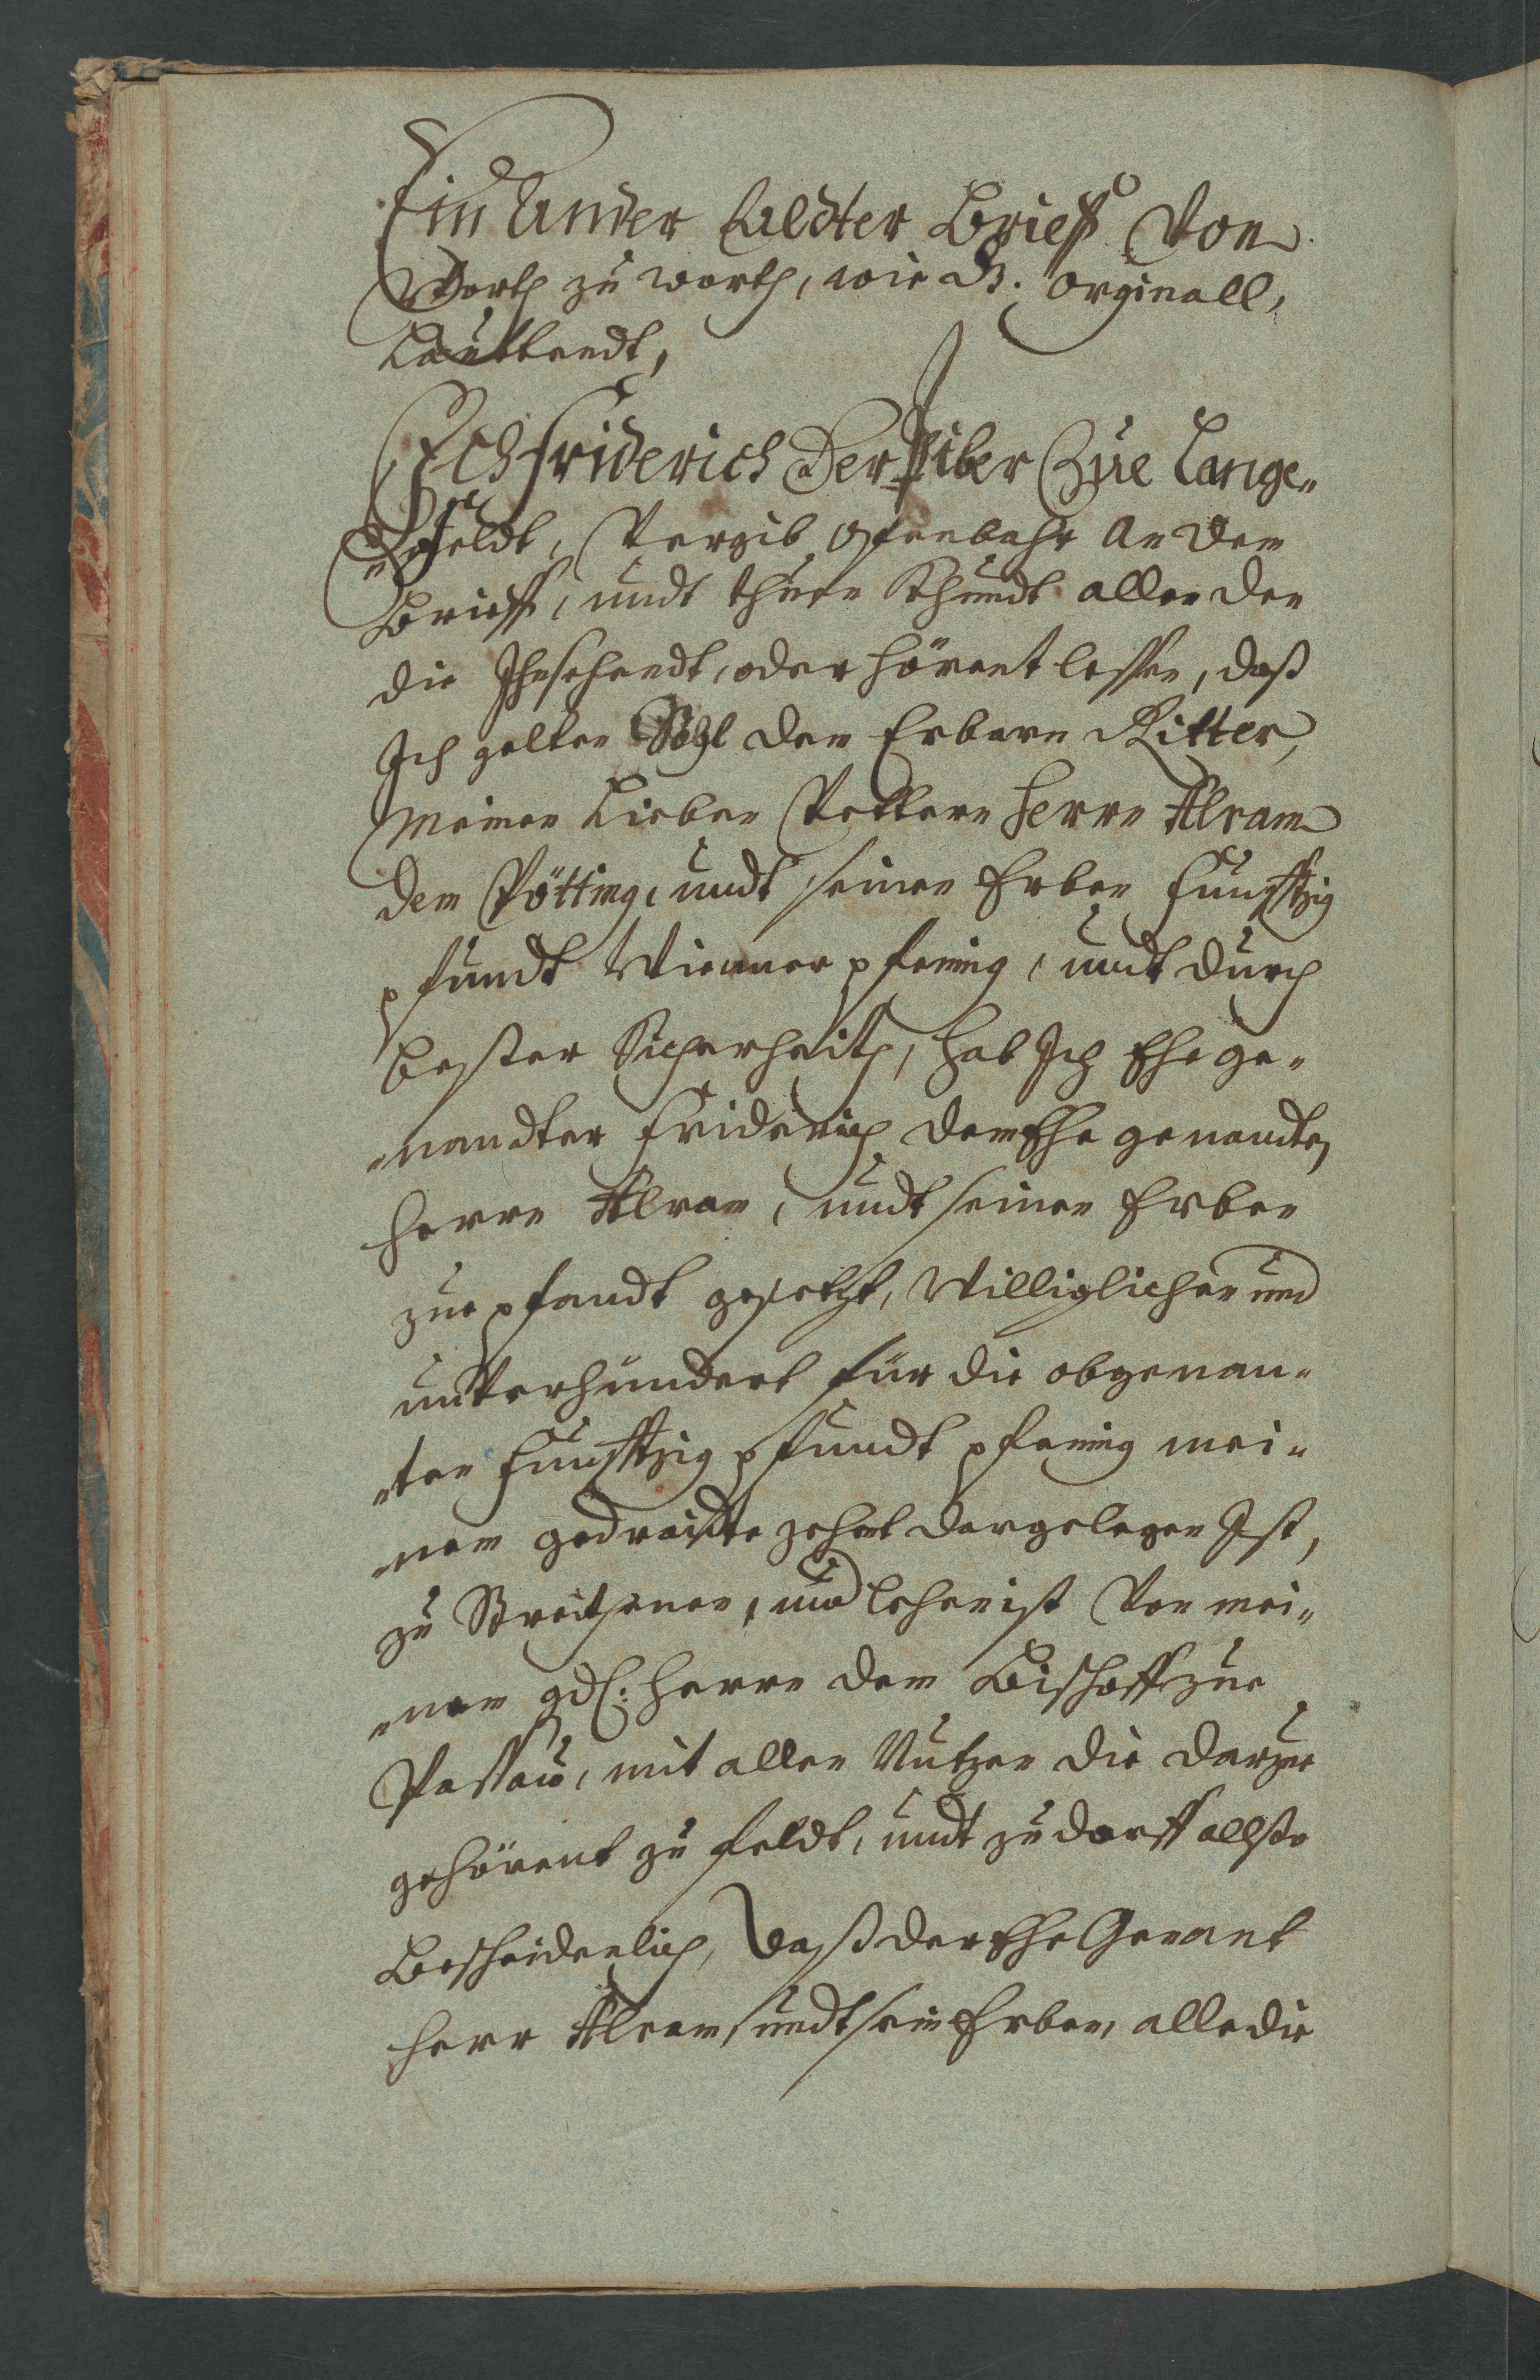 Ein Ander Aldter Brieff Von
Worth zu worth, wie d. Orginall,
Lauttendt,
Ich Friderich Der Piber Zue Lange„
„feldt, Vergib offenbahr An dem
Brieff, undt thuen Khundt allen den
die Ihn sehendt, oder hörent lessen, daß
Ich gelten Sohl dem Erbarn Ritter,
Meinen Lieben Vettern Herrn Alram
dem Pötting, undt seinen Erben Funfftzig
pfundt Wienner pfening, undt durch
bester Sicherheith, hab Ich Ehe ge„
„nandter Friderich dem Ehe genandten
Herrn Alram, undt seinen Erben
zue pfandt gesetzt, Williglichen und
unverhundert für die obgenan„
„ten Funfftzig pfundt pfening mei„
„nem gedraidte zehent der gelegen Ist,
zu Streitsenen, und lehen ist Von mei„
„nem gdl: Herrn dem Bischoff zue
Passau, mit allen Nutzen die darzue
gehörent zu feldt, undt zu dorff allso
Bescheidenlich, daß der Ehe Genant
Herr Alram, undt sein Erben, alle die